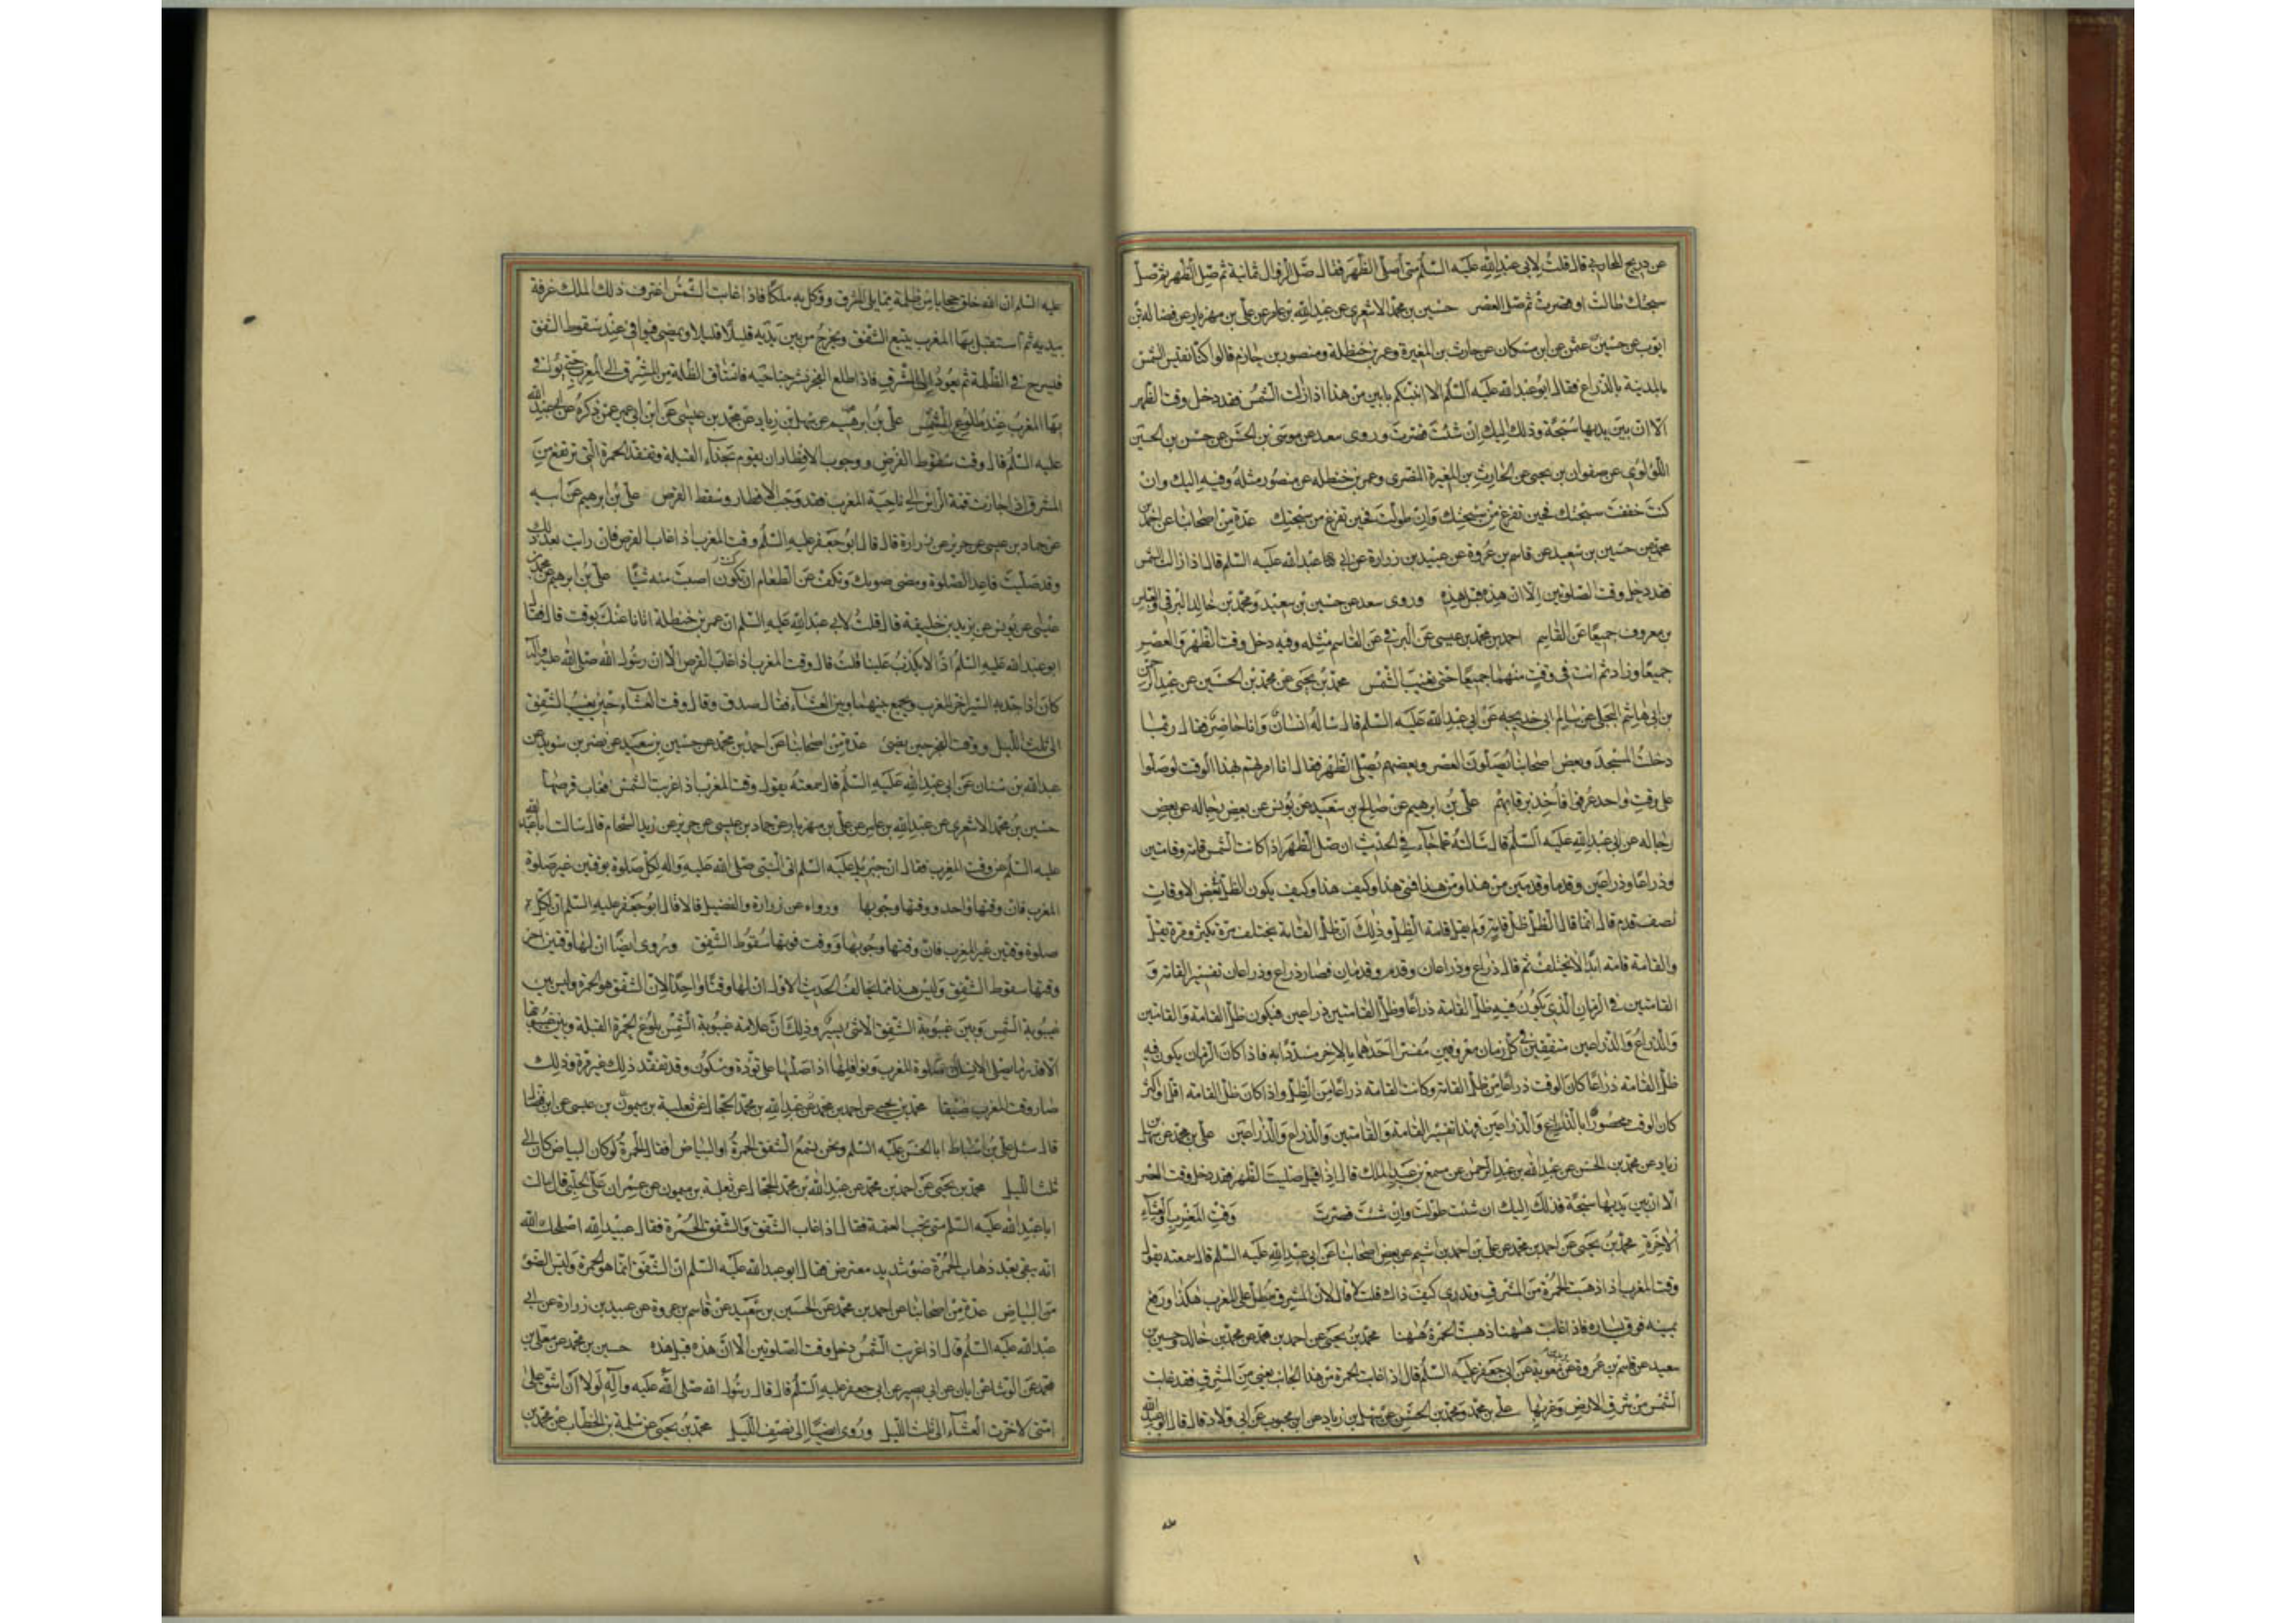 عن ذريح المحاربي قال قلت لابي عبدالله عليه السلم متى أصلي الظهر فقال صل الزوال ثمانية ثم صل الظهر ثم صل
سبحتك طالت او قصرت ثم صل العصر حسين بن محمد الاشعري عن عبدالله بن عامر عن علي بن مهزيار عن فضالة بن
ايوب عن حسين عن ابن مسكان عن حارث بن المغيرة وعمر بن حنظلة ومنصور بن حازم قالوا كنا نقيس الشمس
بالمدينة بالذراع فقال ابو عبدالله عليه السلم الا انبئكم بابين من هذا اذا زالت الشمس فقد دخل وقت الظهر
الا ان بين يديها سبحة وذلك اليك ان شئت قصرت وروى سعد عن موسى بن الحسن عن حسن بن الحسين
اللؤلؤي عن صفوان بن يحيى عن الحارث بن المغيرة النصري وعمر بن حنظله عن منصور مثله وفيه اليك وان
كنت خففت سبحتك فحين تفرغ من سبحتك وان طولت فحين تفرغ من سبحتك عدة من اصحابنا عن احمد بن
محمد عن حسين بن سعيد عن قاسم بن عروة عن عبيد بن زرارة عن ابي عبدالله عليه السلم قال اذا زالت الشمس
فقد دخل وقت الصلوتين الا ان هذه قبل هذه وروى سعد عن حسين بن سعيد ومحمد بن خالد البرقي والعباس
بن معروف جميعا عن القاسم احمد بن محمد بن عيسى عن البرقي عن القاسم مثله وفيه دخل وقت الظهر والعصر
جميعا وزاد ثم انت في وقت منهما جميعا حتى تغيب الشمس محمد بن يحيى عن محمد بن الحسين عن عبد الرحمن
بن ابي هاشم البجلي عن سالم ابي خديجه عن ابي عبدالله عليه السلم قال ساله انسان وانا حاضر فقال ربما
دخلت المسجد وبعض اصحابنا يصلون العصر وبعضهم يصلي الظهر فقال انا امرتهم بهذا لو صلوا
على وقت واحد عرفوا فاخذ برقابهم علي بن ابرهيم عن صالح بن سعيد عن يونس عن بعض رجاله عن بعض
رجاله عن ابي عبدالله عليه السلم قال سالته عما جاء في الحديث ان صل الظهر اذا كانت الشمس قامة وقامتين
وذراعا وذراعين وقدما وقدمين من هذا ومن هذا فمتى هذا وكيف هذا وكيف يكون الظل في بعض الاوقات
نصف قدم قال انما قال ظل القامة ولم يقل قامة الظل وذلك ان ظل القامة يختلف مرة يكثر ومرة يقل
والقامة قامة ابدا لا تختلف ثم قال ذراع وذراعان وقدم وقدمان فصار ذراع وذراعان تفسير القامة و
القامتين في الزمان الذي يكون فيه ظل القامة ذراعا وظل القامتين ذراعين فيكون ظل القامة والقامتين
والذراع والذراعين متفقين في كل زمان معروفين مفسرا احدهما بالاخر مسددا به فاذا كان الزمان يكون فيه
ظل القامة ذراعا كان الوقت ذراعا من ظل القامة وكانت القامة ذراعا من الظل واذا كان ظل القامة اقل او اكثر
كان الوقت محصورا بالذراع والذراعين فهذا تفسير القامة والقامتين والذراع والذراعين علي بن محمد عن سهل بن
زياد عن محمد بن الحسن عن عبدالله بن عبد الرحمن عن مسمع بن عبد الملك قال اذا صليت الظهر فقد دخل وقت العصر
الا ان بين يديها سبحة فذلك اليك ان شئت طولت وان شئت قصرت وقت المغرب والعشاء
الاخرة محمد بن يحيى عن احمد بن محمد عن علي بن احمد بن اشيم عن بعض اصحابنا عن ابي عبدالله عليه السلم قال سمعته يقول
وقت المغرب اذا ذهبت الحمرة من المشرق وتدري كيف ذاك قلت لا قال لان المشرق مطل على المغرب هكذا ورفع
يمينه فوق يساره فاذا غابت ههنا ذهبت الحمرة ههنا محمد بن يحيى عن احمد بن محمد عن محمد بن خالد وحسين بن
سعيد عن قاسم بن عروة عن بريد بن معوية عن ابي جعفر عليه السلم قال اذا غابت الحمرة من هذا الجانب يعني من المشرق فقد غابت
الشمس من شرق الارض وغربها علي بن محمد ومحمد بن الحسن عن سهل بن زياد عن ابن محبوب عن ابي ولاد قال قال ابو عبدالله
عليه السلم ان الله خلق حجابا من ظلمة مما يلي المشرق ووكل به ملكا فاذا غابت الشمس اغترف ذلك الملك غرفة
بيديه ثم استقبل بها المغرب يتبع الشفق ويخرج من بين يديه قليلا قليلا ويمضي فيوافي عند سقوط الشفق
فيسرح في الظلمة ثم يعود الى المشرق فاذا طلع الفجر نشر جناحيه فاستاق الظلمة من المشرق الى المغرب حتى يوافي
بها المغرب عند طلوع الشمس علي بن ابرهيم عن سهل بن زياد عن محمد بن عيسى عن ابن ابي عمير عمن ذكره عن ابي عبدالله
عليه السلم قال وقت سقوط القرص ووجوب الافطار ان يقوم بحذاء القبلة وتتفقد الحمرة التي ترتفع من
المشرق اذا جازت قمة الراس الى ناحية المغرب فقد وجب الافطار وسقط القرص علي بن ابرهيم عن ابيه
عن حماد بن عيسى عن حريز عن زرارة قال قال ابو جعفر عليه السلم وقت المغرب اذا غاب القرص فان رايت بعد ذلك
وقد صليت فاعد الصلوة ومضى صومك وتكف عن الطعام ان كنت اصبت منه شيئا علي بن ابرهيم عن محمد بن
عيسى عن يونس عن يزيد بن خليفة قال قلت لابي عبدالله عليه السلم ان عمر بن حنظلة اتانا عنك بوقت قال فقال
ابو عبدالله عليه السلم اذا لا يكذب علينا قلت قال وقت المغرب اذا غاب القرص الا ان رسول الله صلى الله عليه واله
كان اذا جد به السير اخر المغرب ويجمع بينها وبين العشاء فقال صدق وقال وقت العشاء حين يغيب الشفق
الى ثلث الليل ووقت الفجر حين يضيء عدة من اصحابنا عن احمد بن محمد عن حسين بن سعيد عن نضر بن سويد عن
عبدالله بن سنان عن ابي عبدالله عليه السلم قال سمعته يقول وقت المغرب اذا غربت الشمس فغاب قرصها
حسين بن محمد الاشعري عن عبدالله بن عامر عن علي بن مهزيار عن حماد بن عيسى عن حريز عن زيد الشحام قال سالت ابا عبدالله
عليه السلم عن وقت المغرب فقال ان جبرئيل عليه السلم اتى النبي صلى الله عليه واله لكل صلوة بوقتين غير صلوة
المغرب فان وقتها واحد ووقتها وجوبها ورواه عن زرارة والفضيل قالا قال ابو جعفر عليه السلم ان لكل
صلوة وقتين غير المغرب فان وقتها وجوبها ووقت فوتها سقوط الشفق وروي ايضا ان لها وقتين اخر
وقتها سقوط الشفق وليس هذا مما يخالف الحديث الاول ان لها وقتا واحدا لان الشفق هو الحمرة وليس بين
غيبوبة الشمس وبين غيبوبة الشفق الا شيء يسير وذلك ان علامة غيبوبة الشمس بلوغ الحمرة القبلة وبين غيبوبتها
الا قدر ما يصلي الانسان صلوة المغرب ونوافلها اذا صلاها على تؤدة وسكون وقد تفقدت ذلك غير مرة وذلك
صار وقت المغرب ضيقا محمد بن يحيى عن احمد بن محمد عن عبدالله بن محمد الحجال عن ثعلبة بن ميمون
قال سئل علي بن اسباط ابا الحسن عليه السلم ونحن نسمع الشفق الحمرة او البياض فقال الحمرة لو كان البياض كان الى
ثلث الليل محمد بن يحيى عن احمد بن محمد عن عبدالله بن محمد الحجال عن ثعلبة بن ميمون عن عمران بن علي الحلبي قال سالت
ابا عبدالله عليه السلم متى تجب العتمة فقال اذا غاب الشفق والشفق الحمرة فقال عبيدالله اصلحك الله
انه يبقى بعد ذهاب الحمرة ضوء شديد معترض فقال ابو عبدالله عليه السلم ان الشفق انما هو الحمرة وليس الضوء
من البياض عدة من اصحابنا عن احمد بن محمد عن الحسين بن سعيد عن قاسم بن عروة عن عبيد بن زرارة عن ابي
عبدالله عليه السلم قال اذا غربت الشمس دخل وقت الصلوتين الا ان هذه قبل هذه حسين بن محمد عن معلى بن
محمد عن الوشاء عن ابان عن ابي بصير عن ابي جعفر عليه السلم قال قال رسول الله صلى الله عليه وآله لولا ان اشق على
امتي لاخرت العشاء الى ثلث الليل وروي ايضا الى نصف الليل محمد بن يحيى عن سلمة بن الخطاب عن محمد بن